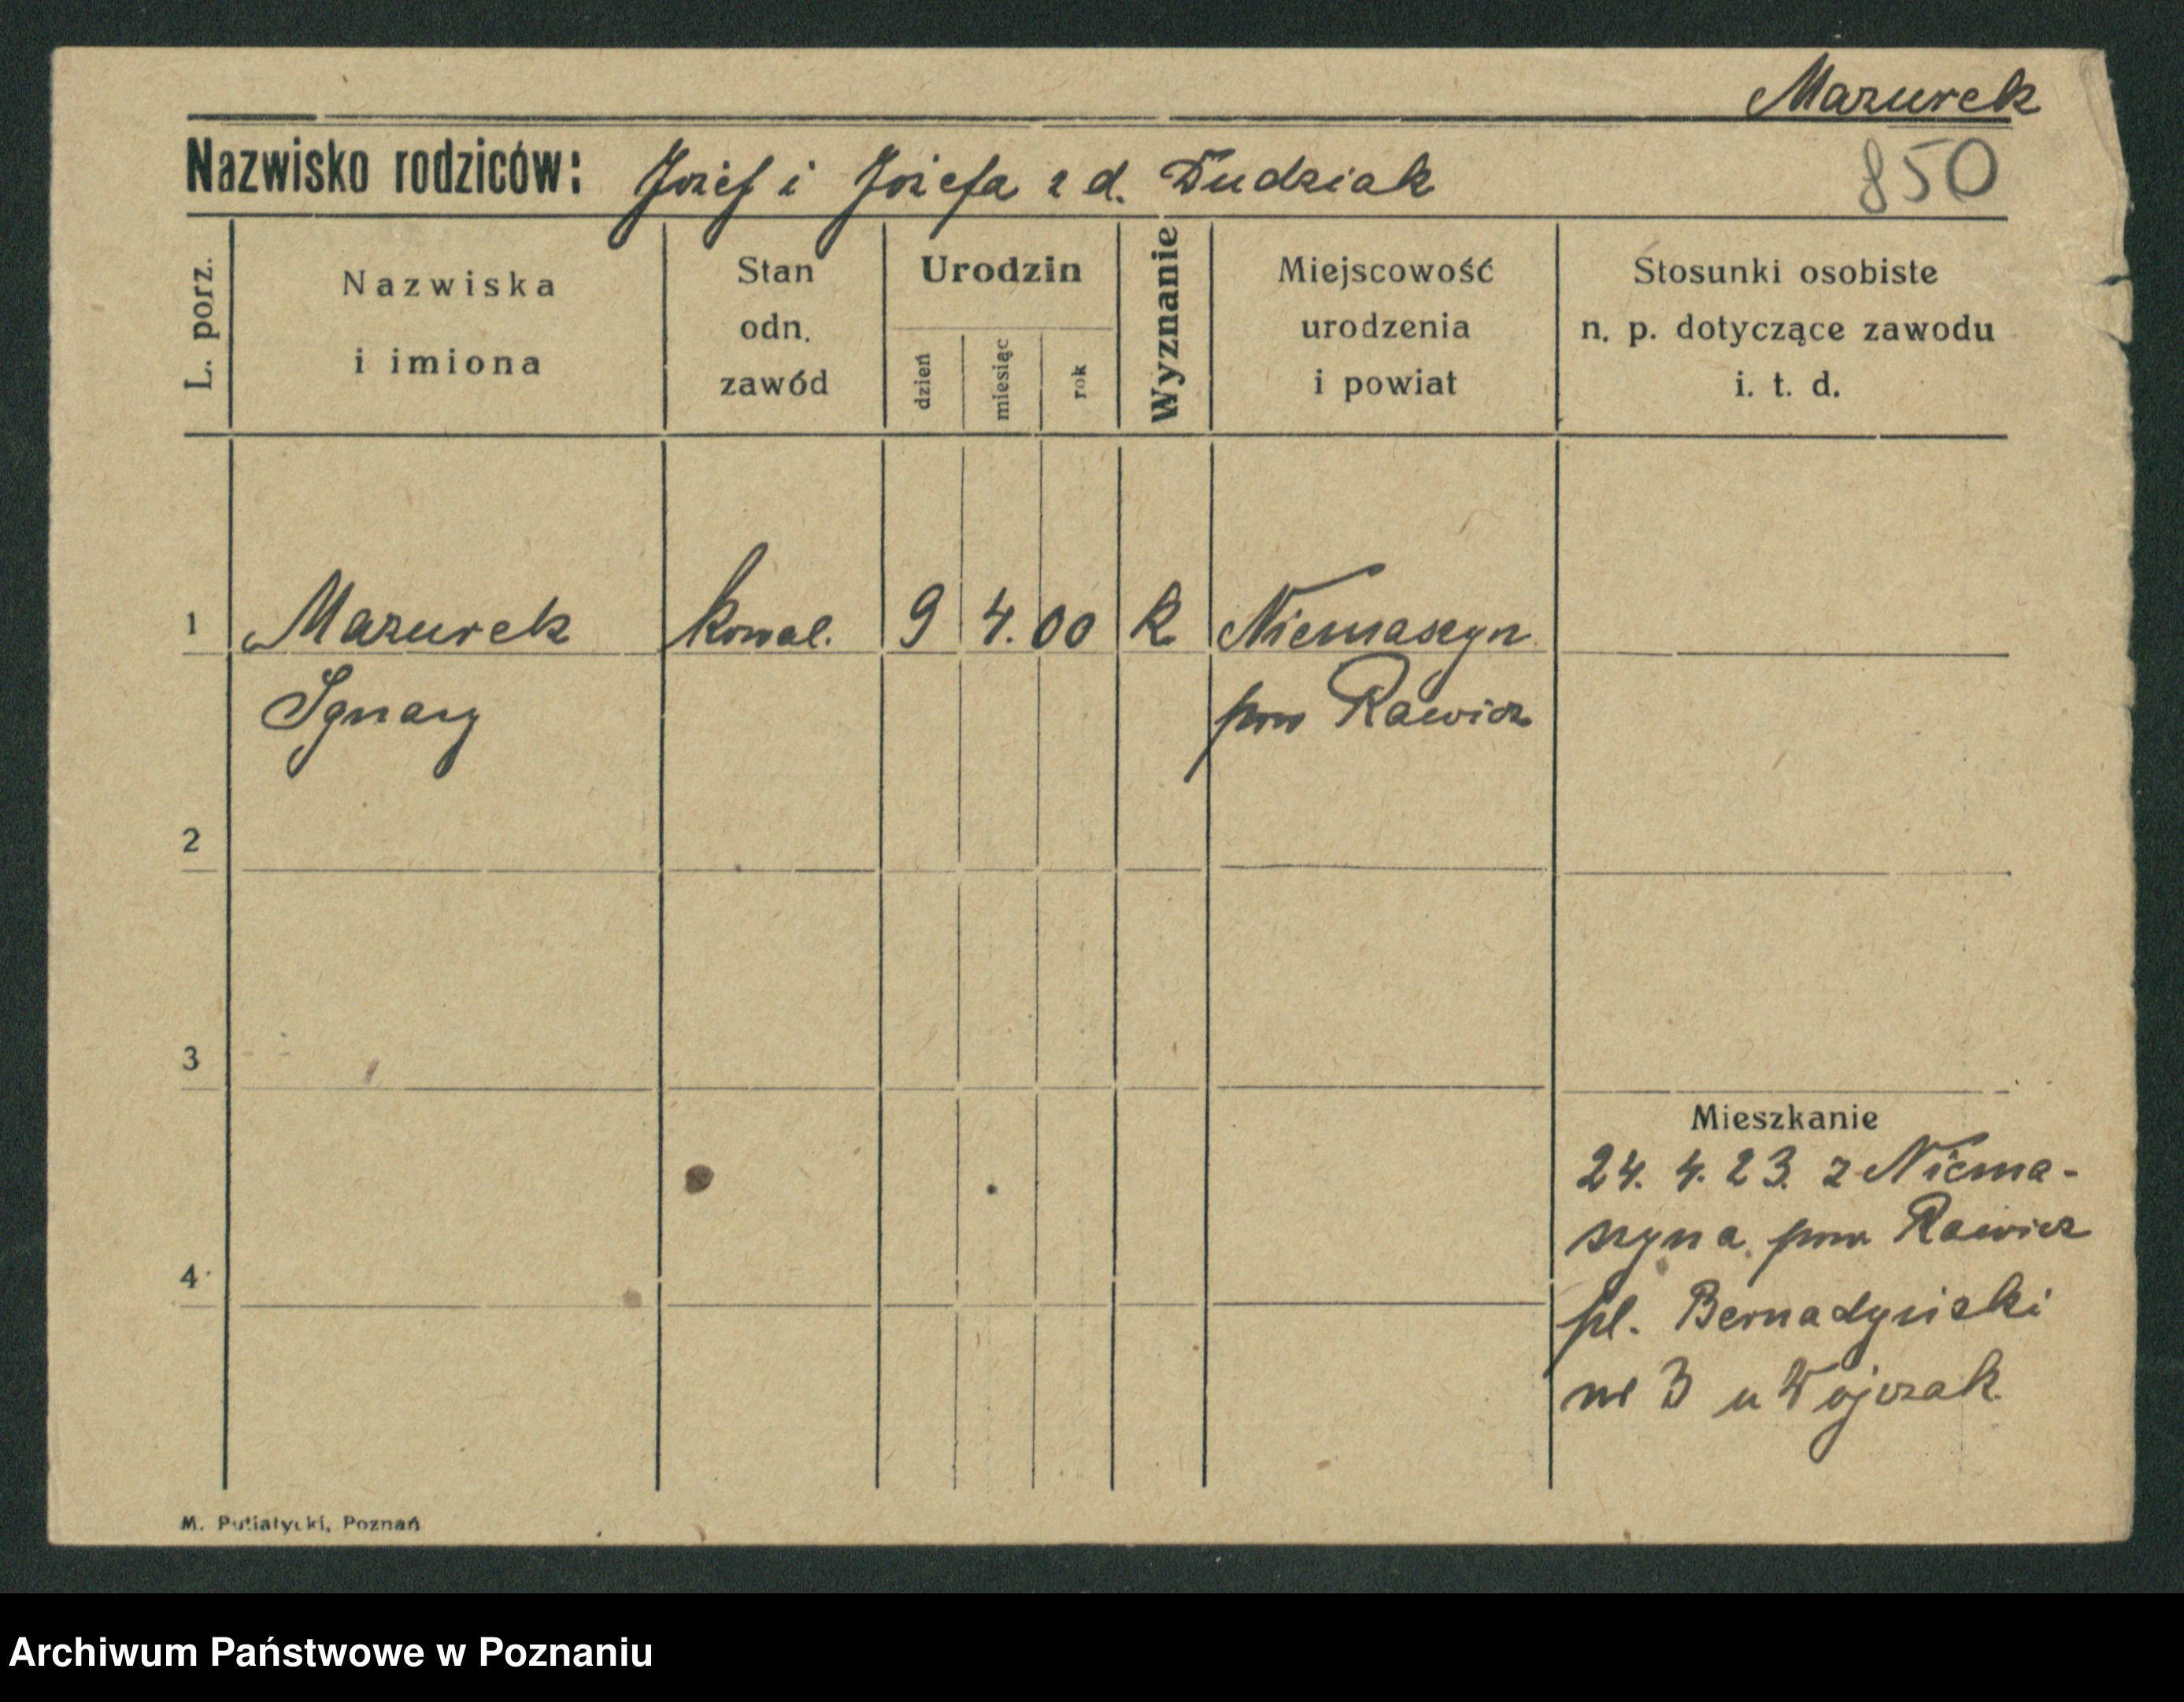 Mazurek
Nazwisko rodziców: Józef i Józefa z d. Dudziak
850
L. porz.
Nazwiska
i imiona
Stan
odn.
zawód
Urodzin
dzień
miesiąc
rok
Wyznanie
Miejscowość
urodzenia
i powiat
Stosunki osobiste
n. p. dotyczące zawodu
i. t. d.
1 Mazurek kowal. 9 4. 00 k Niemaszyn
Ignacy pow Rawicz
2
3
Mieszkanie
24. 4. 23. z Niema-
szyna pow Rawicz
4
pl. Bernadyński
nr 3 u Wojczak
M. Putiatycki, Poznań
Archiwum Państwowe w Poznaniu